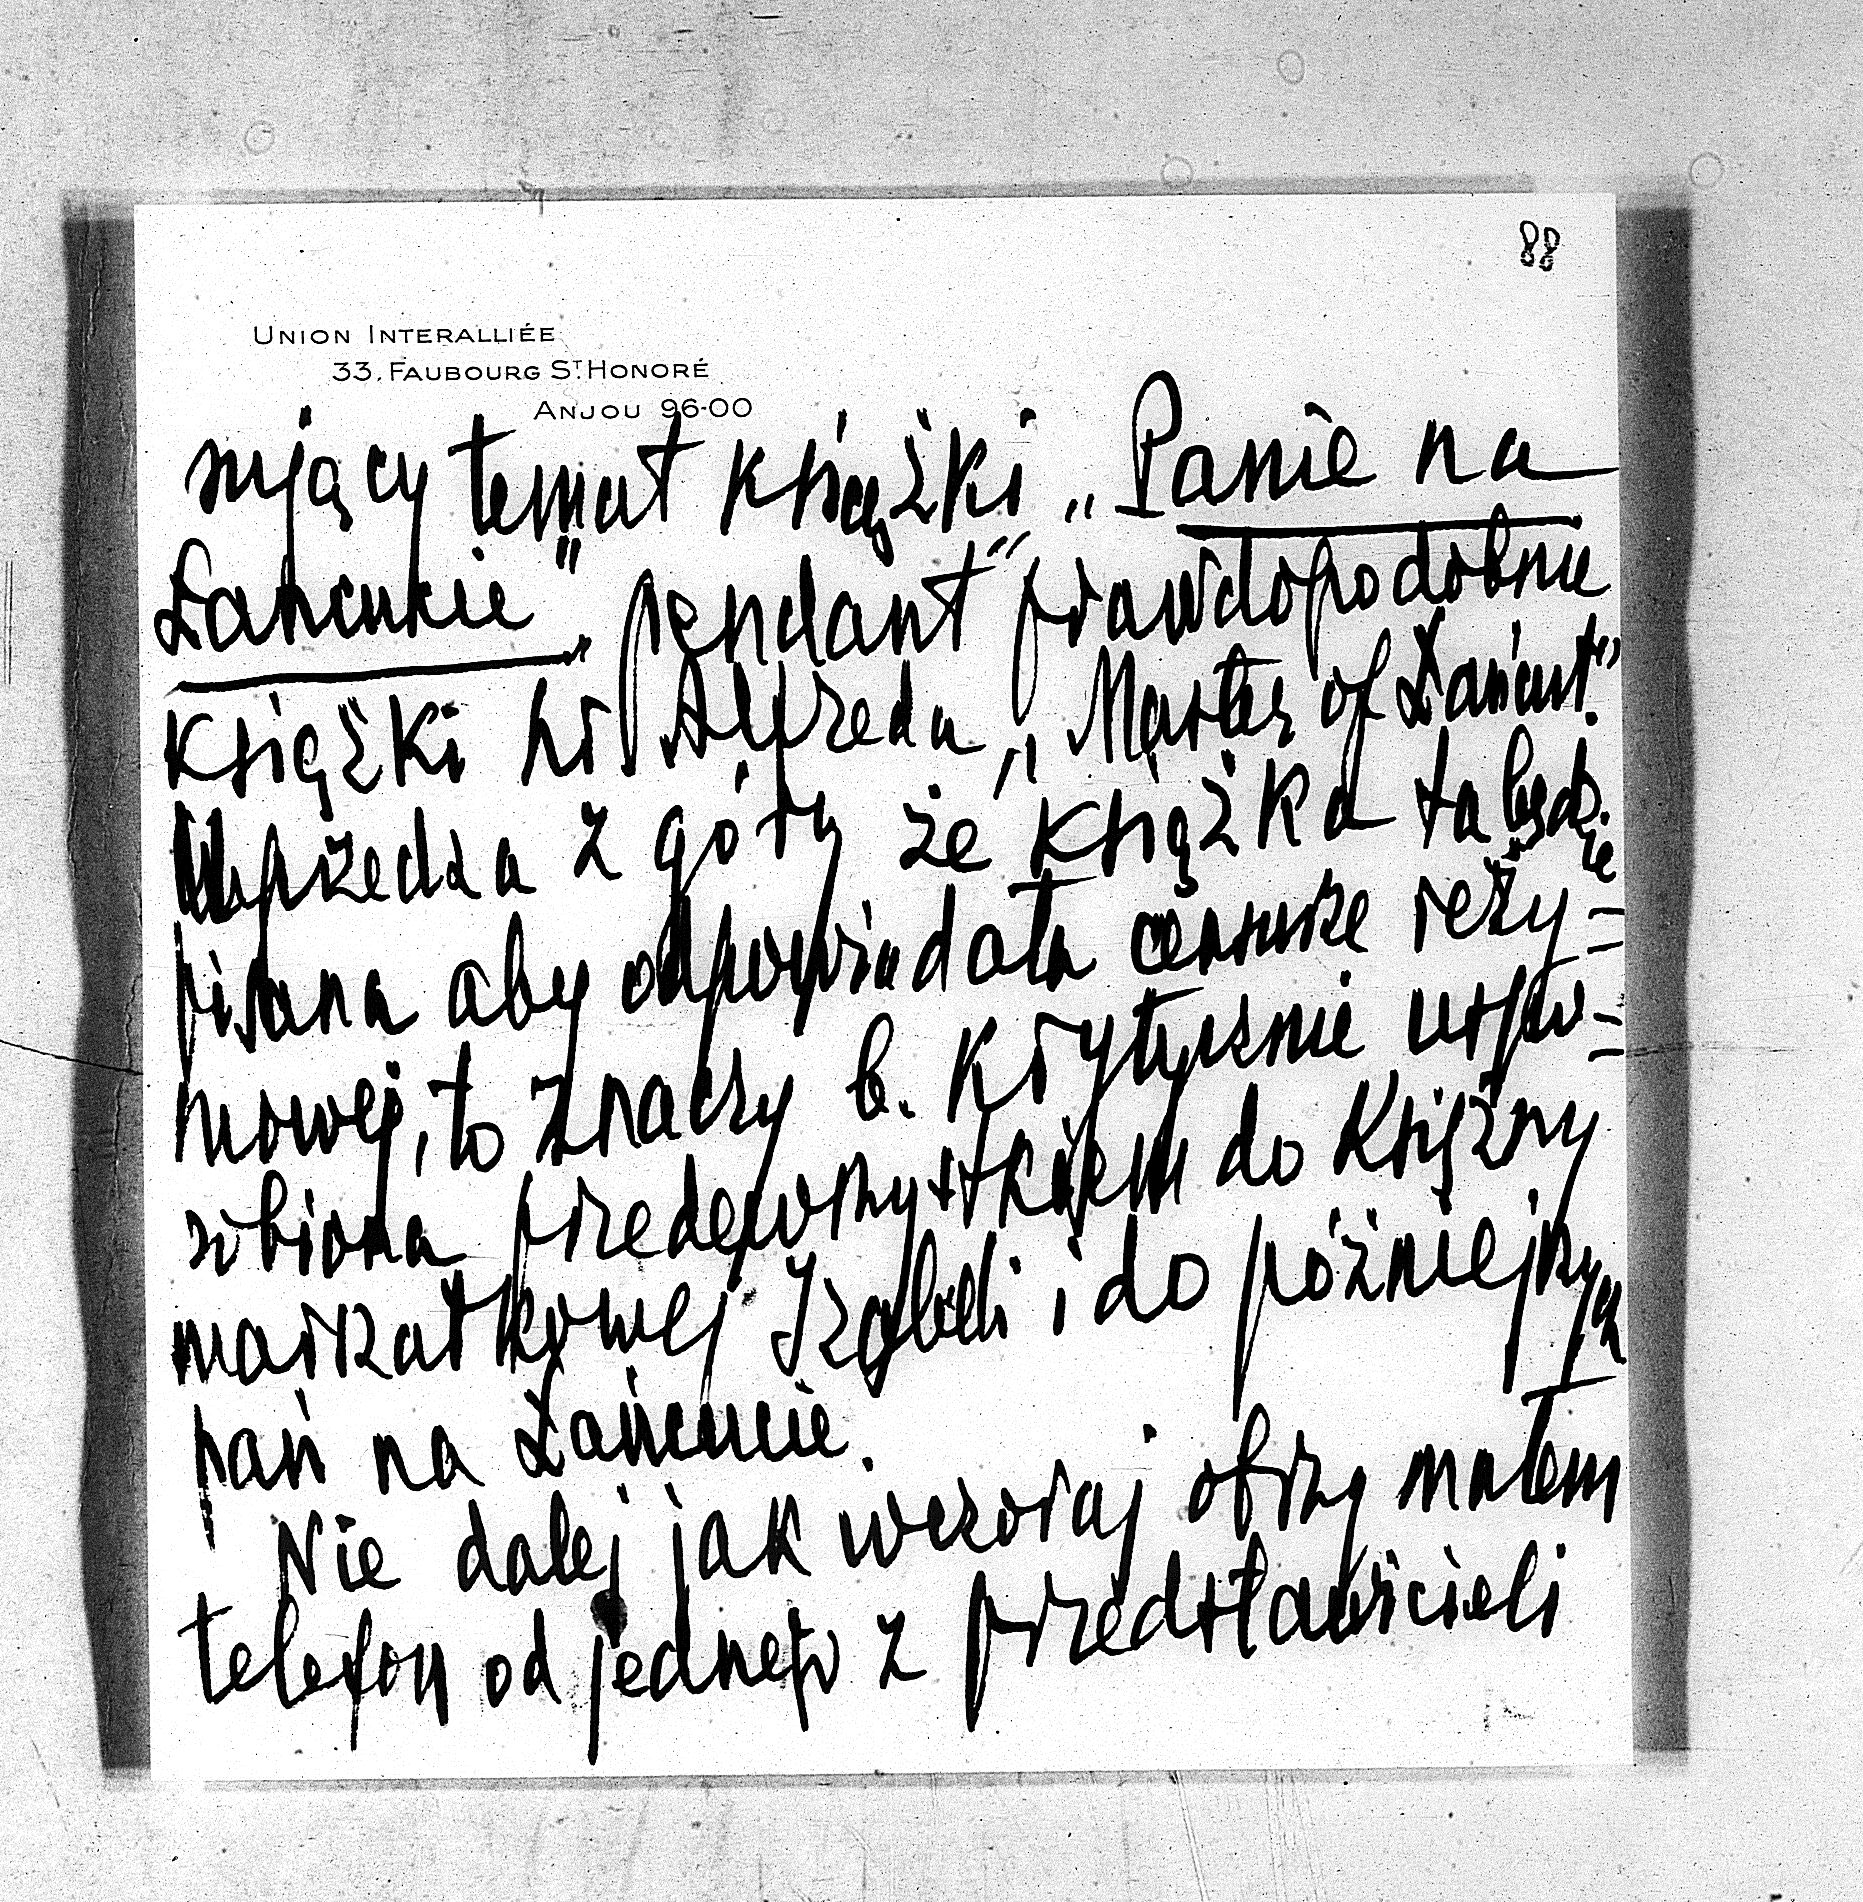 88
UNION INTERALLIÉE
33. FAUBOURG ST. HONORÉ
ANJOU 96-00
sujący temat książki „Panie na
Łańcucie" „pendant" prawdopodobnie
książki hr Alfreda „Master of Łańcut".
Uprzedza z góry że książka ta będzie
pisana aby odpowiadała cenzurze reży=
mowej, to znaczy b. krytycznie uspo=
sobiona przedewszystkiem do Księżny
marszałkowej Izabeli i do późniejszych
pań na Łańcucie.
Nie dalej jak wczoraj otrzymałem
telefon od jednego z przedstawicieli